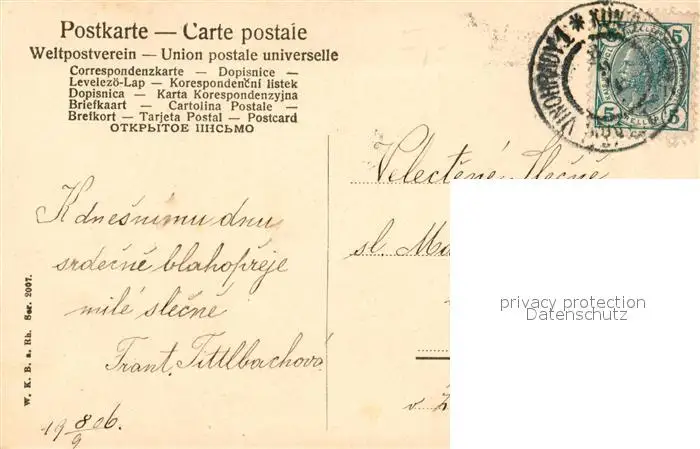 Postkarte — Carte postale
Weltpostverein — Union postale universelle
Correspondenzkarte — Dopisnice —
Levelező-Lap — Korespondenční lístek
Dopisnica — Karta Korespondenzyjna
Briefkaart — Cartolina Postale —
Brefkort — Tarjeta Postal — Postcard
ОТКРЫТОЕ ПИСЬМО
VINOHRADY 1 *
5 5
5 5
Velectěné Slečně
sl. Ma
v
K dnešnímu dnu
srdečně blahopřeje
milé slečně
Frant. Tittlbachová
19 8/9 06.
W. K. B. a. Rh. Ser. 2007.
privacy protection
Datenschutz